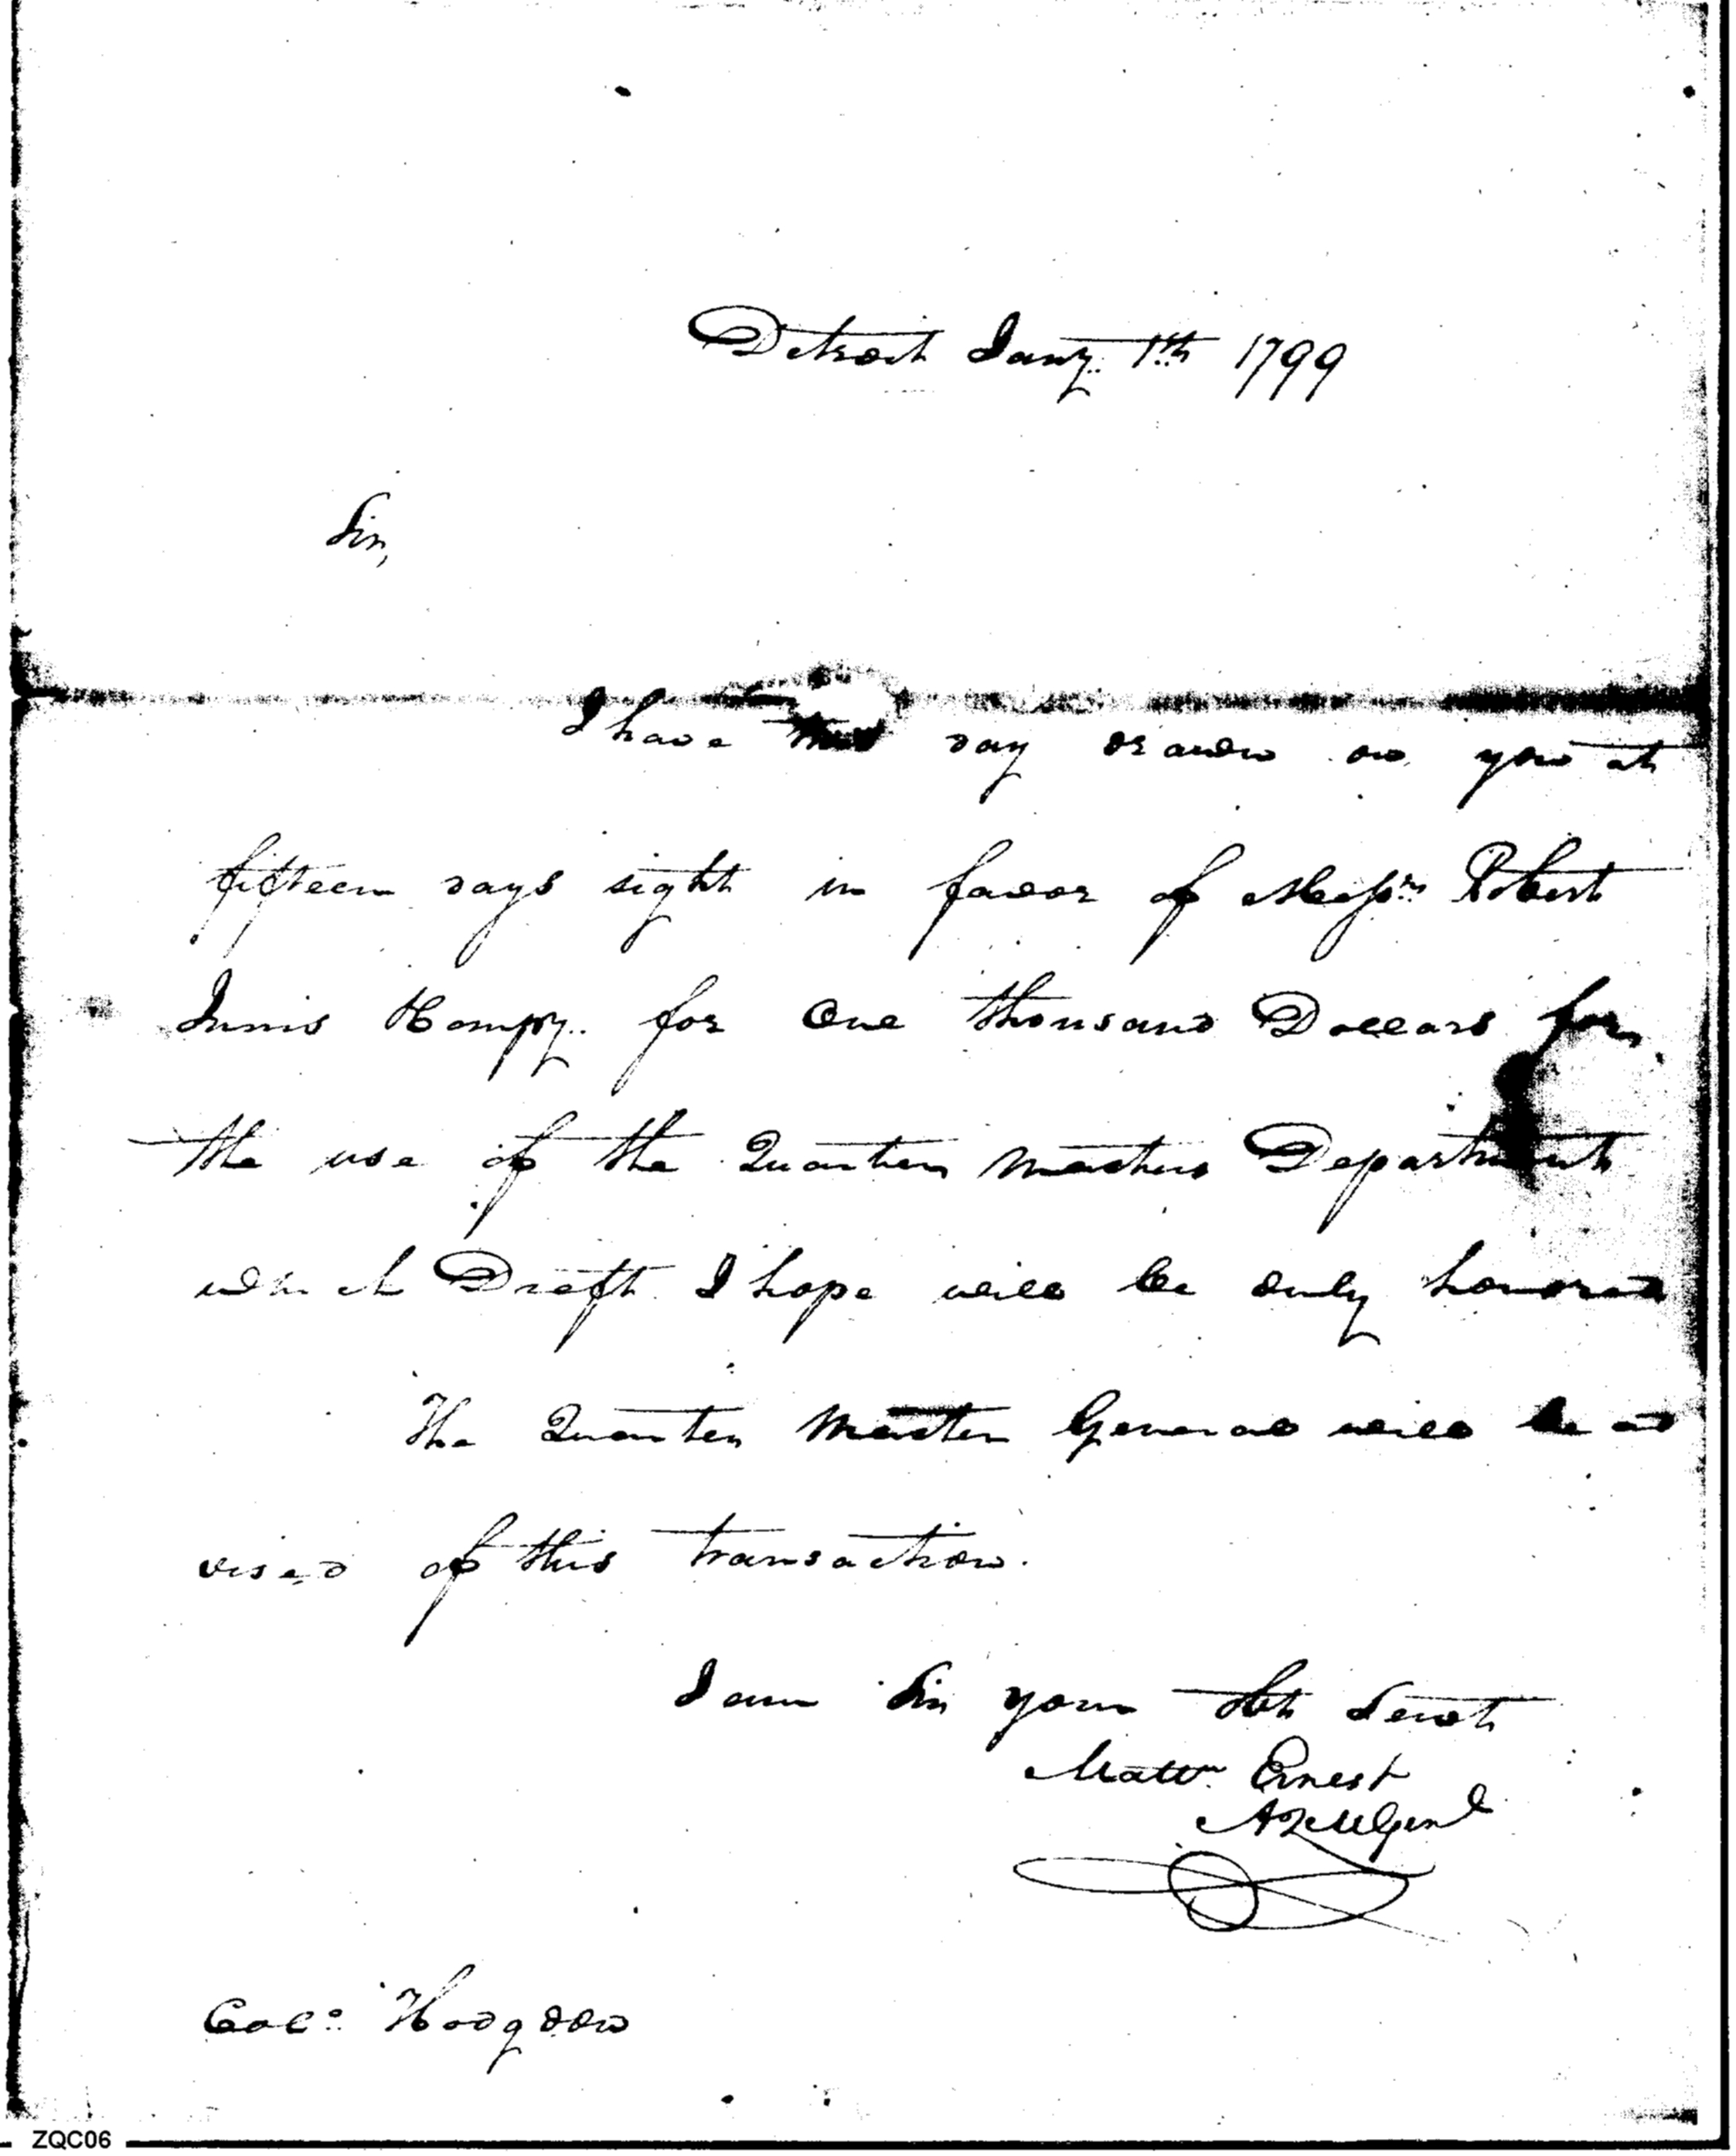 Detroit Jany. 1th 1799
Sir,
I have this day drawn on you at
fifteen days sight in favor of Messrs Robert
Innis & Compy. for One thousand Dollars for
the use of the Quarter Masters Department
which Draft I hope will be duly honored
The Quarter Master General will be ad
vised of this transaction.
I am Sir your Obt Servt
Mattw. Ernest
AQMGenl
Colo. Hodgdon
ZQC06